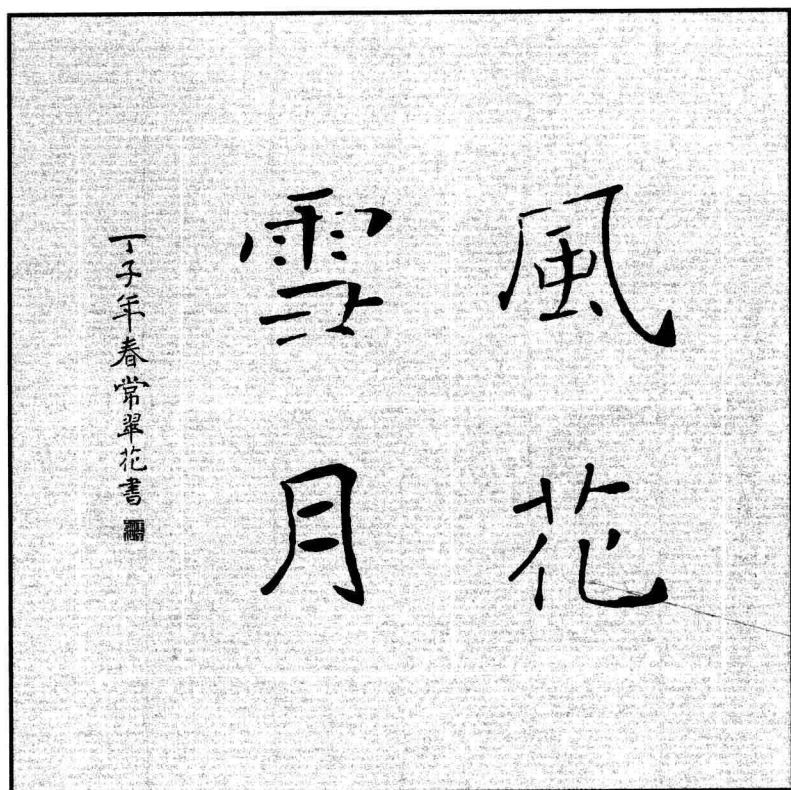 風花
雪月
丁子年春常翠花書